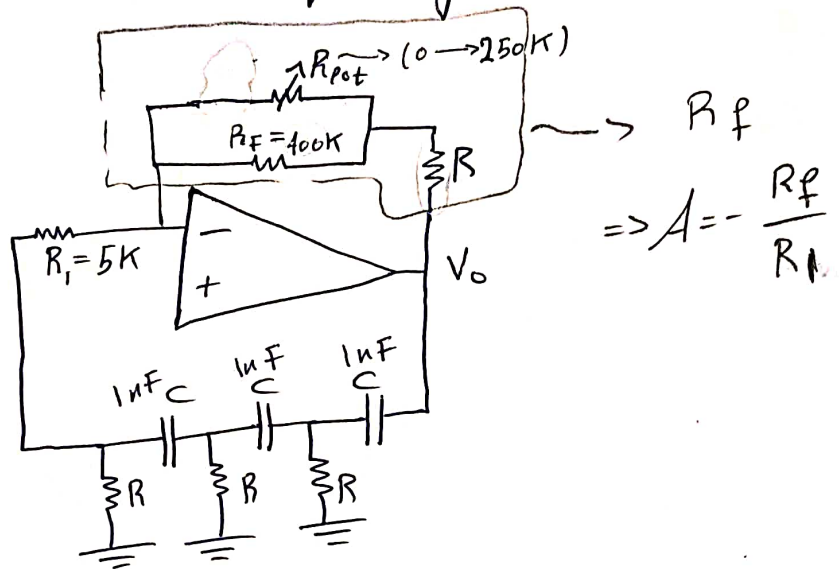 Rpot → (0 → 250K)
RF = 100K
R
→ Rf
=> A = - Rf / R1
R1 = 5K
−
+
Vo
1nF 1nF 1nF
C C C
R R R